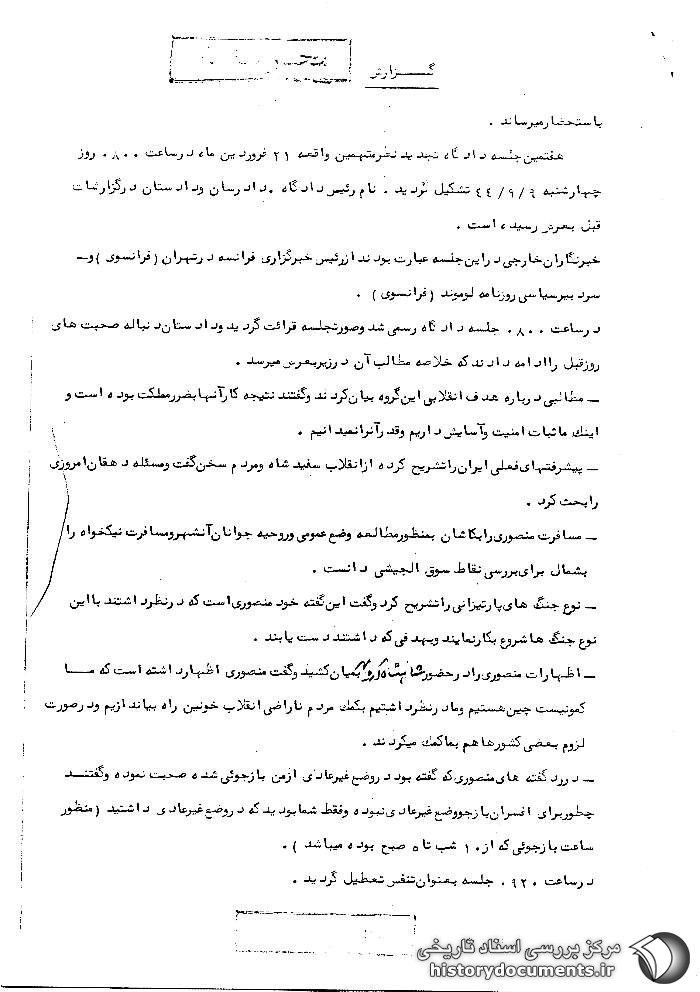 گـــزارش
باستحضار میرساند .
هفتمین جلسه دادگاه تجدید نظر متهمین واقعه ۲۱ فروردین ماه در ساعت ۰۸۰۰ روز
چهارشنبه ۴۴/۹/۶ تشکیل گردید . نام رئیس دادگاه ، دادرسان و دادستان در گزارشات
قبل بعرض رسیده است .
خبرنگاران خارجی در این جلسه عبارت بودند از رئیس خبرگزاری فرانسه در تهران (فرانسوی) و ـ
سردبیر سیاسی روزنامه لوموند (فرانسوی) .
در ساعت ۰۸۰۰ جلسه دادگاه رسمی شد و صورتجلسه قرائت گردید و دادستان دنباله صحبت های
روز قبل را ادامه دادند که خلاصه مطالب آن در زیر بعرض میرسد .
ـ مطالبی درباره هدف انقلابی این گروه بیان کردند و گفتند نتیجه کار آنها بضرر مملکت بوده است و
اینک ما ثبات امنیت و آسایش داریم و قدر آنرا نمیدانیم .
ـ پیشرفتهای فعلی ایران را تشریح کرده از انقلاب سفید شاه و مردم سخن گفت و مسئله دهقان امروزی
را بحث کرد .
ـ مسافرت منصوری را بکاشان بمنظور مطالعه وضع عمومی و روحیه جوانان آنشهر و مسافرت نیکخواه را
بشمال برای بررسی نقاط سوق الجیشی دانست .
ـ نوع جنگ های پارتیزانی را تشریح کرد و گفت این گفته خود منصوری است که در نظر داشتند با این
نوع جنگ ها شروع بکار نمایند و بهدفی که داشتند دست یابند .
ـ اظهارات منصوری را در حضور بمیان کشید و گفت منصوری اظهار داشته است که مـــا
کمونیست چین هستیم و ما در نظر داشتیم بکمک مردم ناراضی انقلاب خونین راه بیاندازیم و در صورت
لزوم بعضی کشورها هم بما کمک میکردند .
ـ در رد گفته های منصوری که گفته بود در وضع غیر عادی از من بازجوئی شده صحبت نموده و گفتنـــد
چطور برای افسران بازجو وضع غیر عادی نبوده و فقط شما بودید که در وضع غیر عادی داشتید (منظور
ساعت بازجوئی که از ۱۰ شب تا ۵ صبح بوده میباشد) .
در ساعت ۰۹۲۰ جلسه بعنوان تنفس تعطیل گردید .
مرکز بررسی اسناد تاریخی
historydocuments.ir